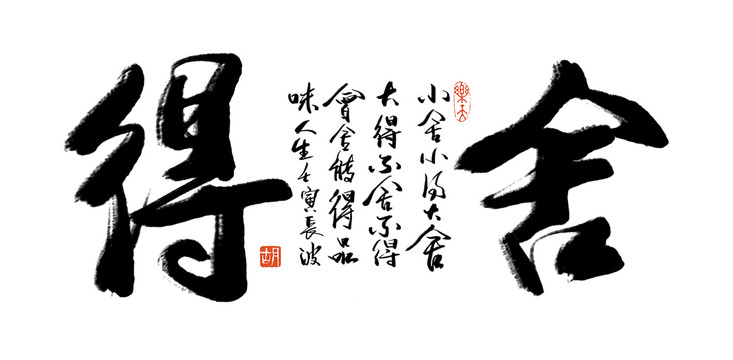 舍
樂天
小舍小得大舍
大得不舍不得
會舍能得品
味人生壬寅長波
胡
得